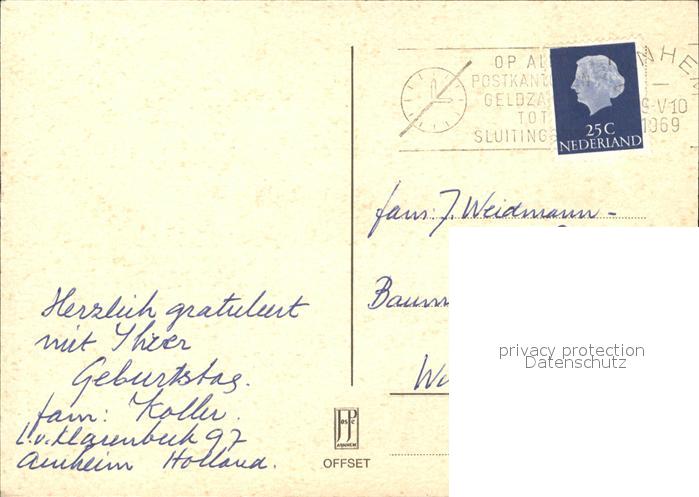 OP AL
POSTKANT
GELDZA
TOT
SLUITING
NHEM
V-10
1969
25C
NEDERLAND
fam: J. Weidmann -
Baum
Herzlich gratuliert
mit Ihrer
Geburtstag.
fam: Koller.
L.v. Klarenbeek 97
Arnheim Holland.
JosPé
ARNHEM
OFFSET
privacy protection
Datenschutz